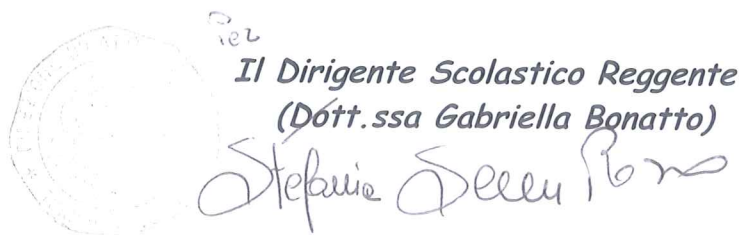 Per
Il Dirigente Scolastico Reggente
(Dott.ssa Gabriella Bonatto)
Stefania